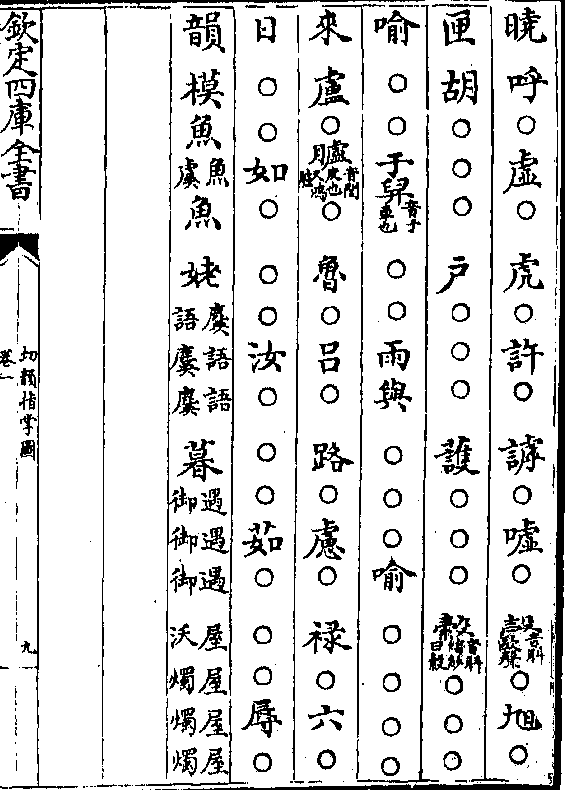 曉呼○虛○虎○許○謼○噓○○旭○
匣胡○○○戶○○○護○○○○○○
喻○○于舁音予車也○○雨與○○○喻○○○○
來盧○臚音閭皮也又鴻臚○魯○呂○路○慮○祿○六○
日○○如○○○汝○○○茹○○○辱○
韻模魚魚虞魚姥麌語語麌語麌暮遇御遇御遇御屋沃屋燭屋燭屋燭
欽定四庫全書
切韻指掌圖
卷一
九